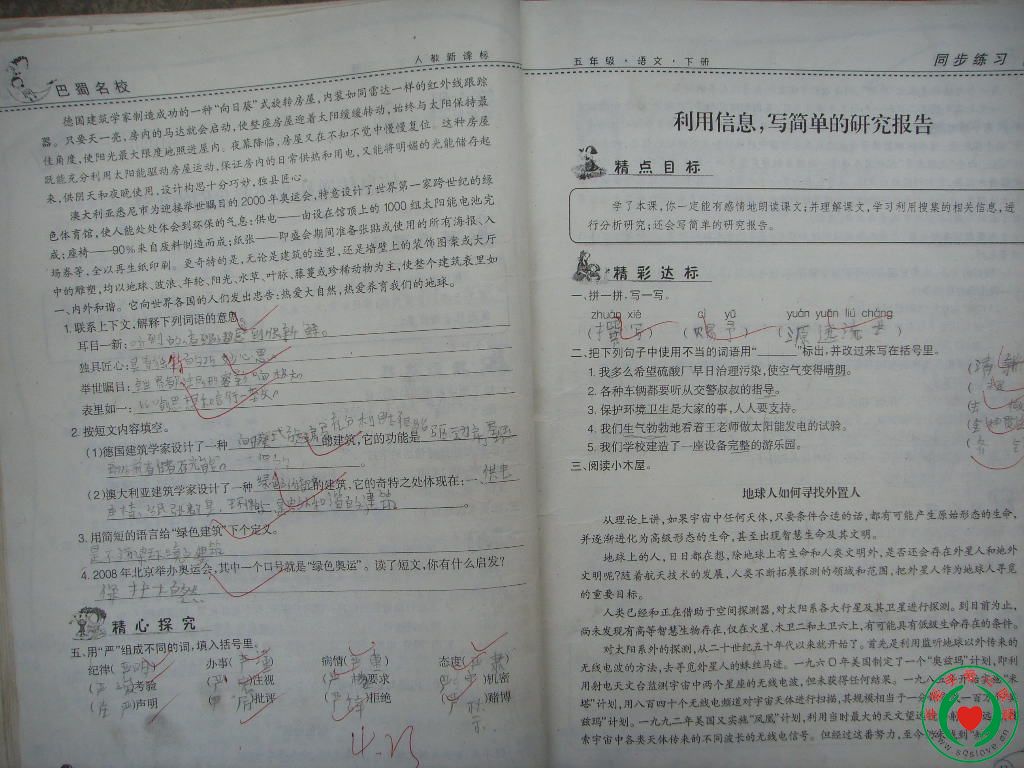 巴蜀名校
人教新课标
德国建筑学家制造成功的一种"向日葵"式旋转房屋,内装如同雷达一样的红外线跟踪
器。只要天一亮,房内的马达就会启动,使整座房屋迎着太阳缓缓转动,始终与太阳保持最
佳角度,使阳光最大限度地照进屋内。夜幕降临,房屋又在不知不觉中慢慢复位。这种房屋
既能充分利用太阳能驱动房屋运动,保证房内的日常供热和用电,又能将明媚的光能储存起
来,供阴天和夜晚使用,设计构思十分巧妙,独具匠心。
澳大利亚悉尼市为迎接举世瞩目的2000年奥运会,特意设计了世界第一家跨世纪的绿
色体育馆,使人能处处体会到环保的气息:供电——由设在馆顶上的1000组太阳能电池完
成;座椅——90%来自废料制造而成;纸张——即盛会期间准备张贴或使用的所有海报、入
场券等,全以再生纸印刷。更奇特的是,无论是建筑的造型,还是墙壁上的装饰图案或大厅
中的雕塑,均以地球、波浪、年轮、阳光、水草、叶脉、藤蔓或珍稀动物为主,使整个建筑表里如
一、内外和谐。它向世界各国的人们发出忠告:热爱大自然,热爱养育我们的地球。
1.联系上下文,解释下列词语的意思。
耳目一新:听到的看到的都感到很新鲜。
独具匠心:
举世瞩目:
表里如一:
2.按短文内容填空。
(1)德国建筑学家设计了一种 的建筑,它的功能是
(2)澳大利亚建筑学家设计了一种 的建筑,它的奇特之处体现在:
3.用简短的语言给"绿色建筑"下个定义。
4.2008年北京举办奥运会,其中一个口号就是"绿色奥运"。读了短文,你有什么启发?
保护大自然
精心探究
五、用"严"组成不同的词,填入括号里。
纪律(严明) 办事( ) 病情(严重) 态度(严肃)
( )考验 ( )注视 (严格)要求 (严)机密
(庄严)声明 (严厉)批评 ( )拒绝 (严)赌博
4.23
五年级·语文·下册
同步练习
利用信息,写简单的研究报告
精点目标
学了本课,你一定能有感情地朗读课文;并理解课文,学习利用搜集的相关信息,进
行分析研究;还会写简单的研究报告。
精彩达标
一、拼一拼,写一写。
zhuàn xiě cì yǔ yuán yuǎn liú cháng
(撰写) (赐予) (源远流长)
二、把下列句子中使用不当的词语用"______"标出,并改过来写在括号里。
1.我多么希望硫酸厂早日治理污染,使空气变得晴朗。
2.各种车辆都要听从交警叔叔的指导。
3.保护环境卫生是大家的事,人人要支持。
4.我们生气勃勃地看着王老师做太阳能发电的试验。
5.我们学校建造了一座设备完整的游乐园。
三、阅读小木屋。
地球人如何寻找外置人
从理论上讲,如果宇宙中任何天体,只要条件合适的话,都有可能产生原始形态的生命,
并逐渐进化为高级形态的生命,甚至出现智慧生命及其文明。
地球上的人,日日都在想,除地球上有生命和人类文明外,是否还会存在外星人和地外
文明呢?随着航天技术的发展,人类不断拓展探测的领域和范围,把外星人作为地球人寻觅
的重要目标。
人类已经和正在借助于空间探测器,对太阳系各大行星及其卫星进行探测。到目前为止,
尚未发现有高等智慧生物存在,仅在火星、木卫二和土卫六上,有可能具有低级生命存在的条件。
对太阳系外的探测,从二十世纪五十年代以来就开始了。首先是利用监听地球以外传来的
无线电波的方法,去寻觅外星人的蛛丝马迹。一九六〇年美国制定了一个"奥兹玛"计划,即利
用射电天文台监测宇宙中两个星座的无线电波,但未获得任何结果。一九八五年开始实施"米
塔"计划,用八百四十个无线电频道对宇宙天体进行扫描,其规模相当于一 一百万 "奥
兹玛"计划。一九九二年美国又实施"凤凰"计划,利用当时最大的天文望远镜
索宇宙中各类天体传来的不同波长的无线电信号。但经过这番努力,至今
www.sqslove.cn